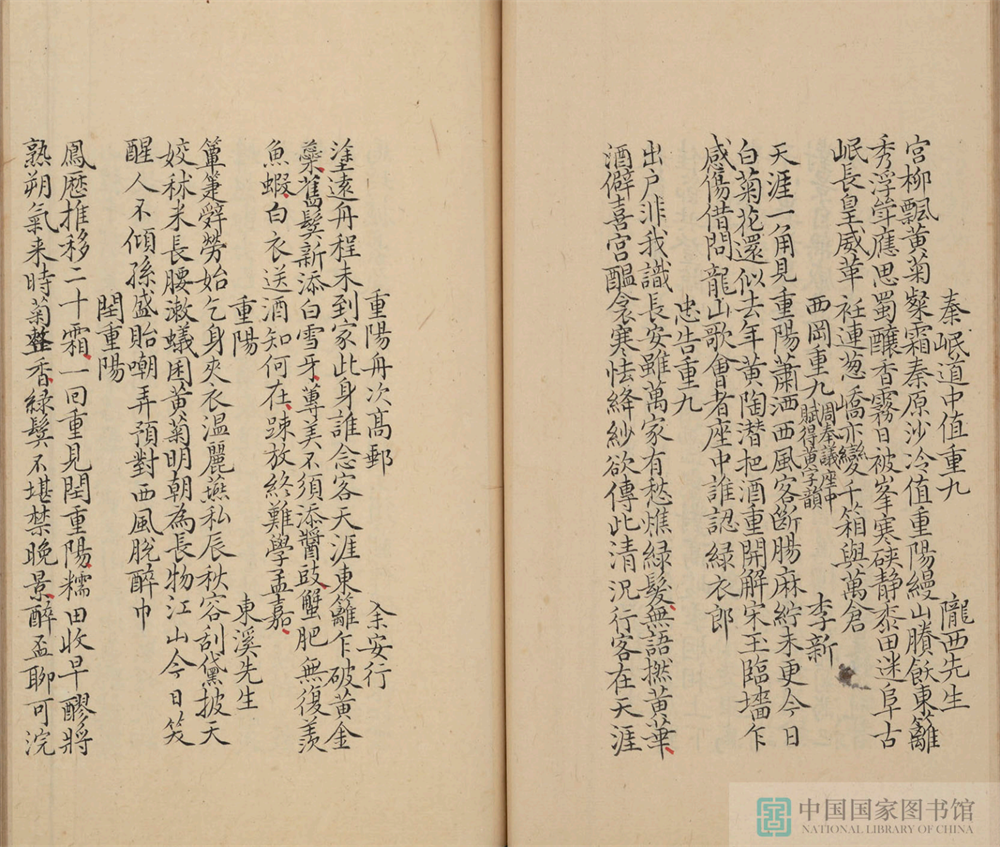 秦岷道中值重九 隴西先生
宮柳飄黃菊粲霜秦原沙冷值重陽縵山賸飫東籬
秀浮竿應思蜀釀香霧日被峯寒硤静黍田迷阜古
岷長皇威革衽連葱嶠亦變千箱與萬倉
西岡重九周奉議座中賦得黄字韻 李新
天涯一角見重陽蕭洒西風客斷腸麻紵未更今日
白菊花還似去年黄陶潛把酒重開解宋玉臨墻乍
感傷借問龍山歌會者座中誰認綠衣郎
忠告重九
出户非我識長安雖萬家有愁燋緑髮無語撚黄華
酒僻喜宮醖衾寒怯絳紗欲傳此清況行客在天涯
重陽舟次高郵 余安行
塗遠舟程未到家此身誰念客天涯東籬乍破黄金
蘂舊鬂新添白雪牙蓴美不須添醬豉蟹肥無復羨
魚蝦白衣送酒知何在踈放終難學孟嘉
重陽 東溪先生
簞箑辭勞始乞身夾衣温麗燕私辰秋容刮黛披天
姣秫米長腰漵蟻困黄菊明朝為長物江山今日笑
醒人不傾孫盛貽嘲弄預對西風脫醉巾
閏重陽
鳳歷推移二十霜一回重見閏重陽糯田收早醪將
熟朔氣来時菊整香緑鬂不堪禁晚景醉盃聊可浣
中国国家图书馆
NATIONAL LIBRARY OF CHINA